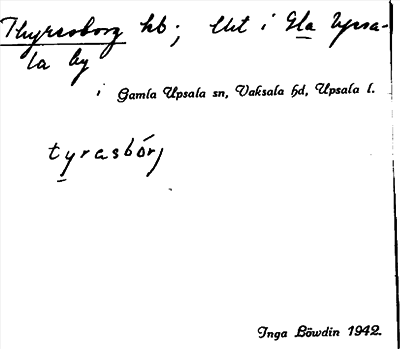 Thyrasborg hb; Utt i Gla Upsa-
la by
i Gamla Upsala sn, Vaksala hd, Upsala l.
tyrasbórj
Inga Böwdin 1942.